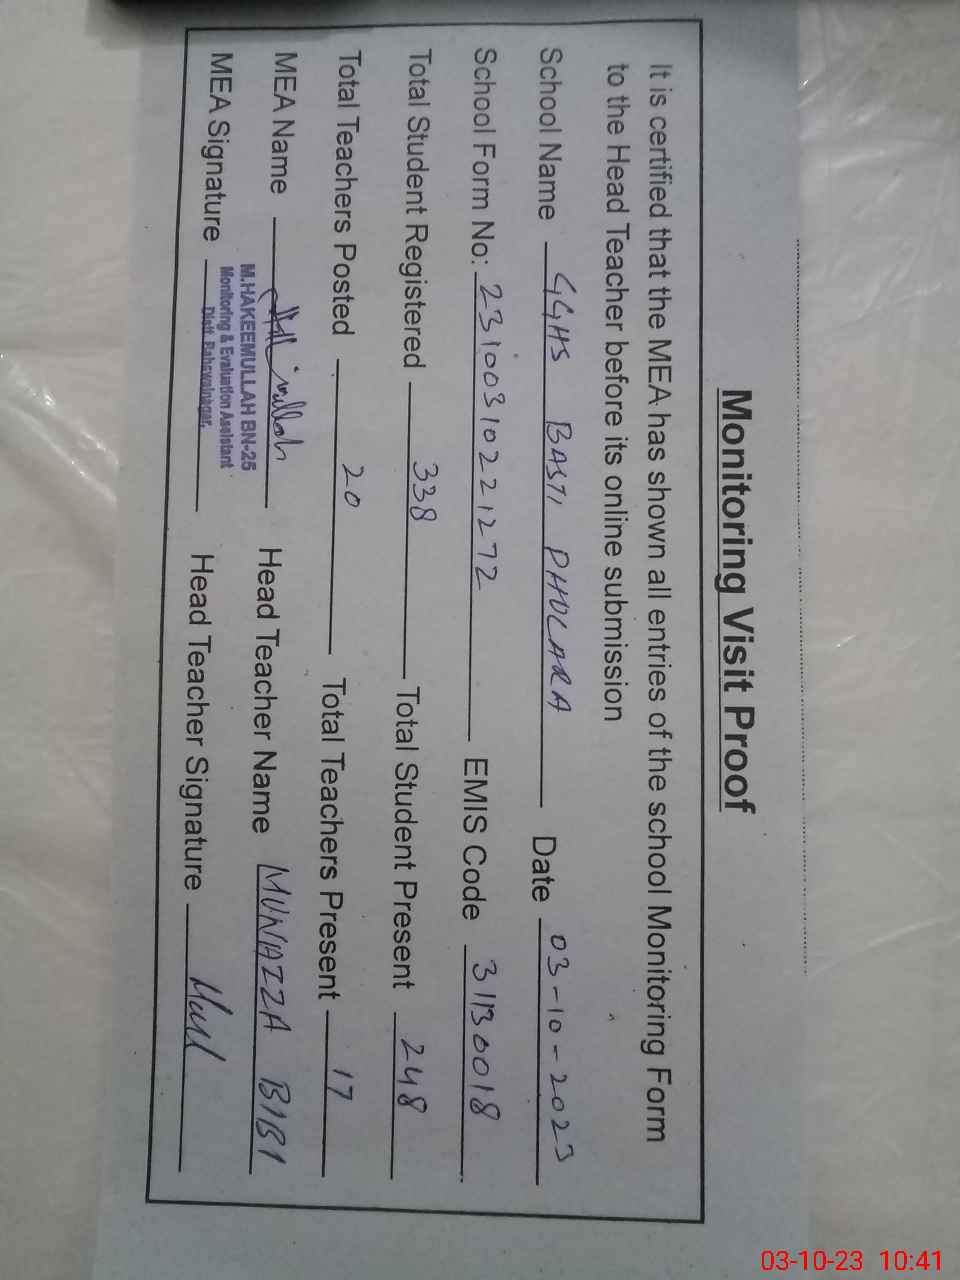 Monitoring Visit Proof
It is certified that the MEA has shown all entries of the school Monitoring Form
to the Head Teacher before its online submission
School Name GGHS BASTI PHULARA Date 03-10-2023
School Form No: 23100310221272 EMIS Code 31130018
Total Student Registered 338 Total Student Present 248
Total Teachers Posted 20 Total Teachers Present 17
MEA Name Head Teacher Name MUNAZZA BIBI
M.HAKEEMULLAH BN-25
Monitoring & Evaluation Assistant
Distt. Bahawalnagar.
MEA Signature Head Teacher Signature
03-10-23 10:41